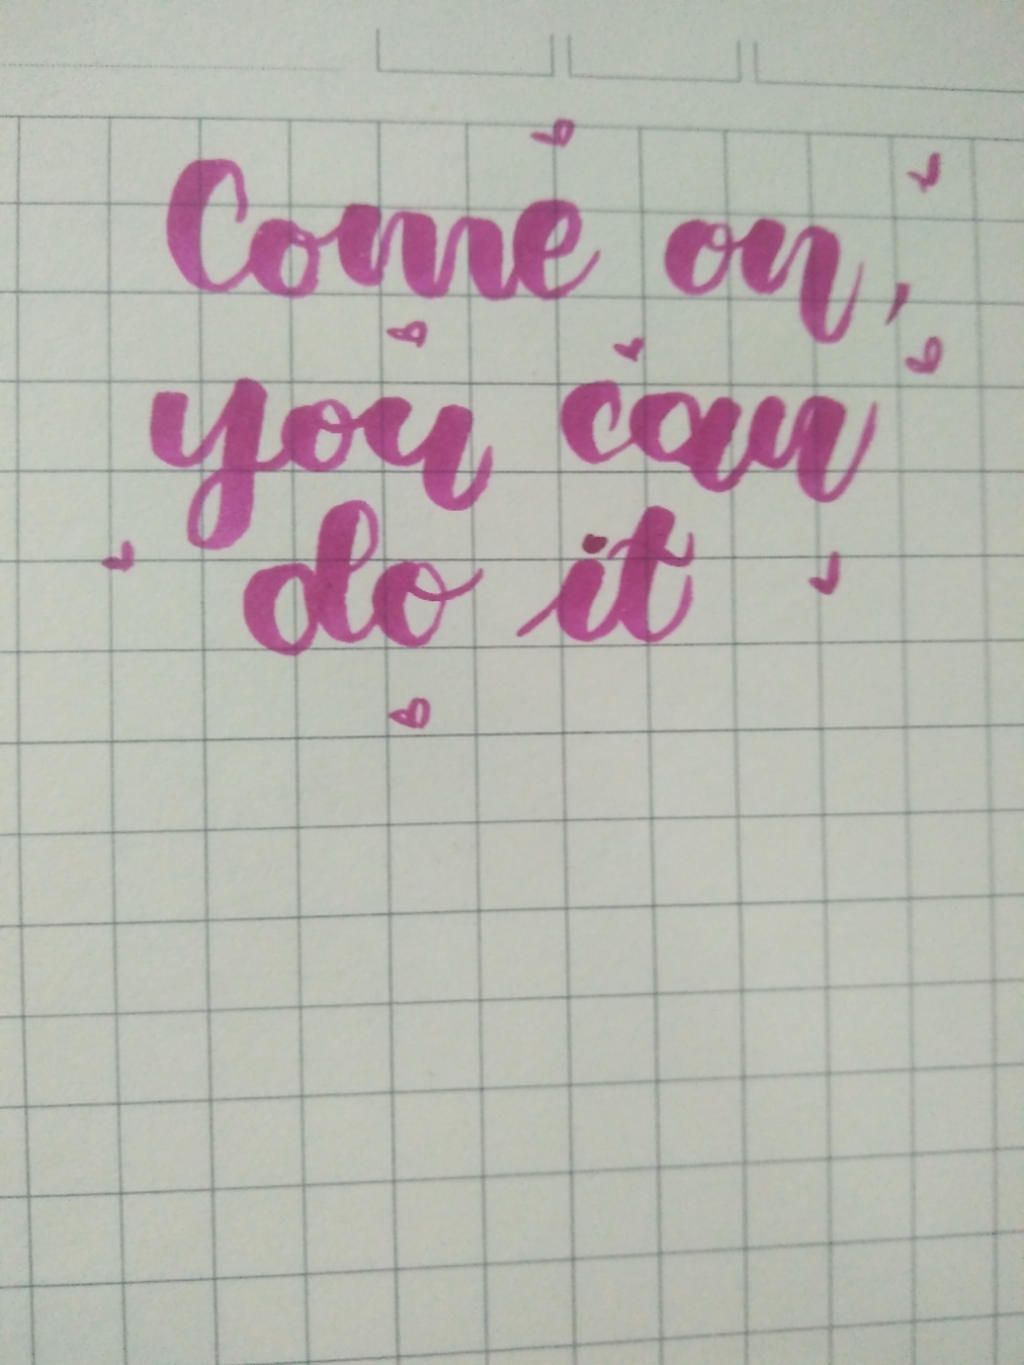 Come on,
you can
do it